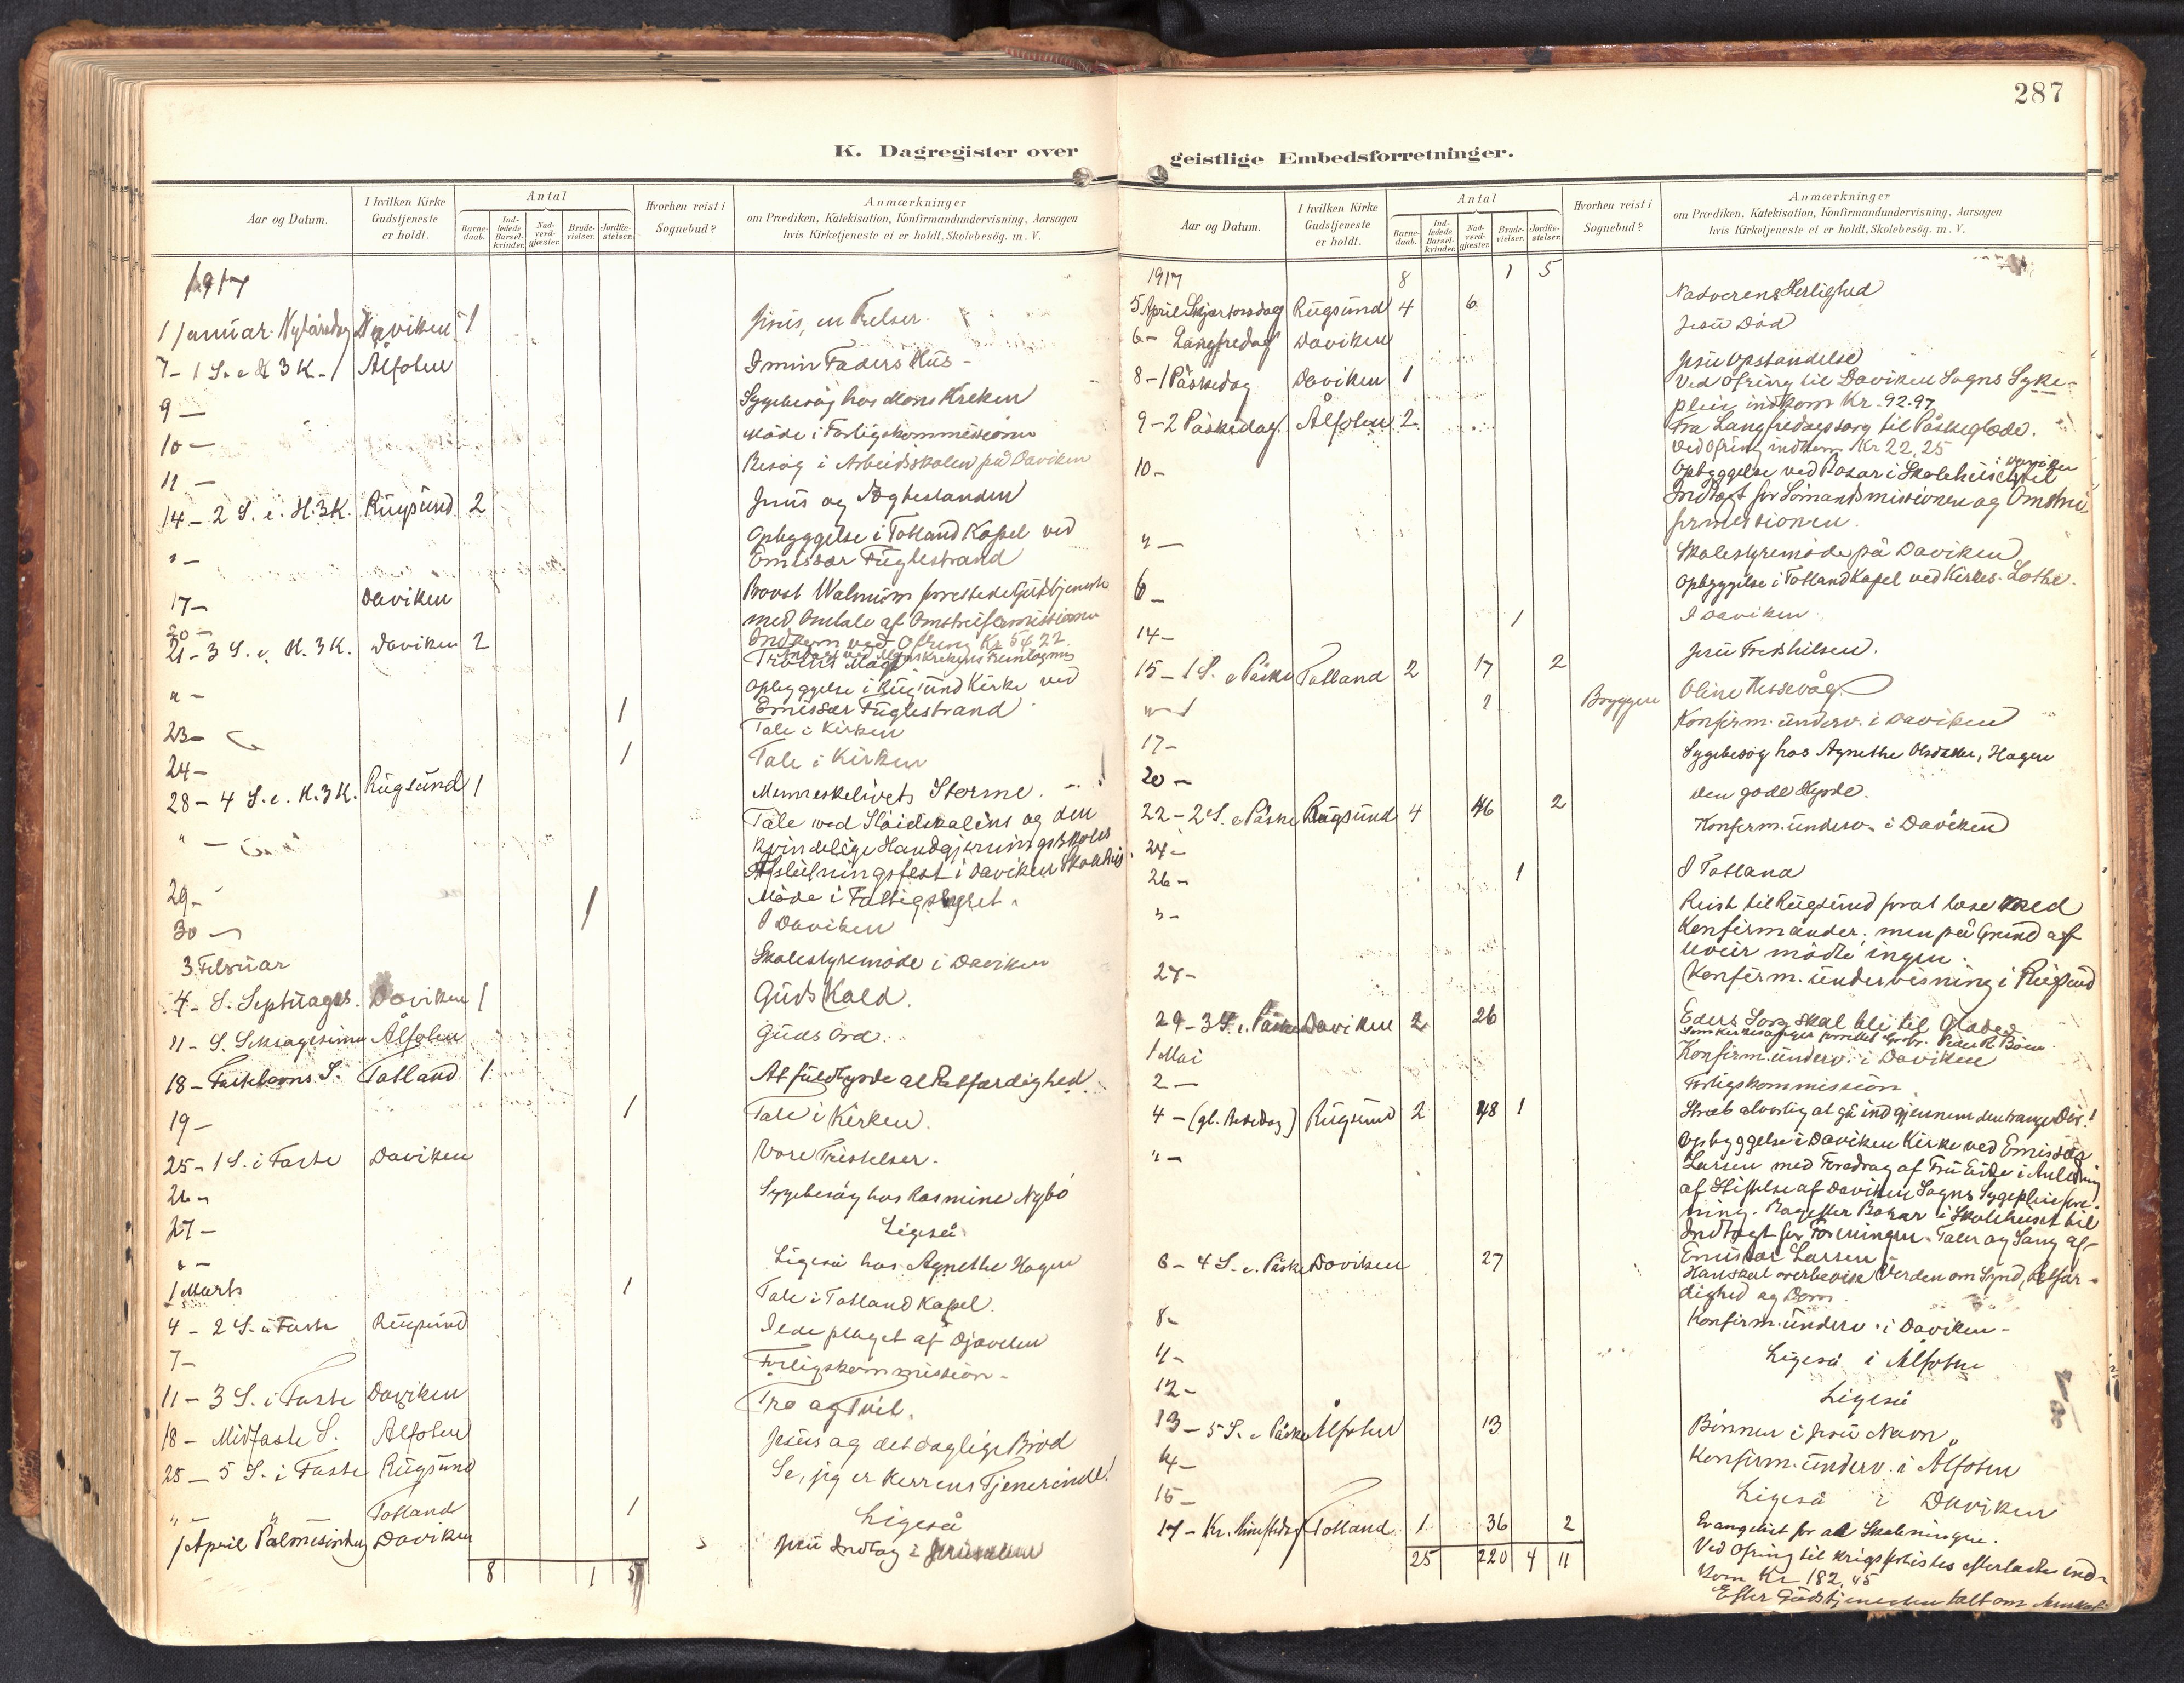 287
K. Dagregister over geistlige Embedsforretninger.
Aar og Datum. I hvilken Kirke Gudstjeneste er holdt. Antal Barne-daab. Ind-ledede Barsel-kvinder. Nad-verd-gjæster. Brude-vielser. Jordfæ-stelser. Hvorhen reist i Sognebud? Anmærkninger om Prædiken, Katekisation, Konfirmandundervisning, Aarsagen hvis Kirketjeneste ei er holdt, Skolebesøg. m. V.
1917
1 Januar Nytårsdag Daviken 1 Jesus, en Frelser.
7 - 1 S. e H 3 K - Ålfoten I min Faders Hus -
9 - Sygebesøg hos Mons Kreken
10 - Møde i Forligskommissionen
11 - Besøg i Arbeidsskolen på Daviken
14 - 2 S. e. H. 3 K. Rugsund 2 Jesus og Ægtestanden
" - Opbyggelse i Totland Kapel ved
Emissær Fuglestrand
17 - Daviken Provst Walnum forrettede Gudstjeneste
med Omtale af Omstreifermissionen
Indkom ved Ofring Kr 54,22.
20 -
21 - 3 S. e. H. 3 K. Daviken 2 Troens Magt
" - Opbyggelse i Rugsund Kirke ved
Emissær Fuglestrand
23 - 1 Tale i Kirken
24 - 1 Tale i Kirken
28 - 4 S. e. H. 3 K. Rugsund 1 Menneskelivets Storme.
" - Tale ved Sløidskolens og den
kvindelige Handgjerningsskoles
Afslutningsfest i Daviken Skolehus
29 - Møde i Fattigstyret.
30 - 1 I Daviken
3 Februar Skolestyremøde i Daviken
4 - S. Septuages. Daviken 1 Guds Kald.
11 - S. Seksagesima Ålfoten Guds Ord.
18 - Fastelavns S. Totland 1 At fuldbyrde al Retfærdighed.
19 - 1 Tale i Kirken.
25 - 1 S. i Faste Daviken Vore Fristelser.
26 - Sygebesøg hos Rasmine Nybø
27 - Ligeså
" - Ligeså hos Agnethe Hagen
1 Marts 1 Tale i Totland Kapel.
4 - 2 S. i Faste Rugsund Ilde plaget af Djævelen
7 - Forligskommission -
11 - 3 S. i Faste Daviken Tro og Tvil.
18 - Midfaste S. Ålfoten Jesus og det daglige Brød
25 - 5 S. i Faste Rugsund Se, jeg er Herrens Tjenerinde!
" " Totland 1 Ligeså
1 April Palmesøndag Daviken Jesu Indtog i Jerusalem
8 1 5
Aar og Datum. I hvilken Kirke Gudstjeneste er holdt. Antal Barne-daab. Ind-ledede Barsel-kvinder. Nad-verd-gjæster. Brude-vielser. Jordfæ-stelser. Hvorhen reist i Sognebud? Anmærkninger om Prædiken, Katekisation, Konfirmandundervisning, Aarsagen hvis Kirketjeneste ei er holdt, Skolebesøg. m. V.
1917 8 1 5
5 April Skjærtorsdag Rugsund 4 6 Nadverens Herlighed
6 - Langfredag Daviken Jesu Død
8 - 1 Påskedag Daviken 1 Jesu Opstandelse
Ved Ofring til Daviken Sogns Syke-
pleie indkom Kr. 92.97
9 - 2 Påskedag. Ålfoten 2 Fra Langfredagssorg til Påskeglæde.
Ved Ofring indkom Kr 22,25
10 - Opbyggelse ved Basar i Skolehuset i Daviken til
Indtægt for Sømandsmissionen og Omstrei-
fermissionen.
" - Skolestyremøde på Daviken
Opbyggelse i Totland Kapel ved Kirkes. Lothe.
14 - 1 I Daviken
15 - 1 S. e Påske Totland 2 17 2 Jesu Fredshilsen.
" Bryggen Oline Hessevåg
17 - Konfirm. underv. i Daviken
20 - Sygebesøg hos Agnethe Hagen
22 - 2 S. e Påske Rugsund 4 46 2 Den gode Hyrde.
24 - Konfirm. underv. i Daviken
26 - 1 I Totland
" - Reist til Rugsund forat læse med
Konfirmander, men på Grund af
uveir mødte ingen.
27 - Konfirm. undervisning i Rugsund
29 - 3 S. e. Påske Daviken 2 26 Eders Sorg skal bli til Glæde.
1 Mai Konfirm. underv. i Daviken
2 - Forligskommission
4 - (gl. Bededag) Rugsund 2 48 1 Stræb alvorlig at gå ind gjennem den trange Dør!
" - Opbyggelse i Daviken Kirke ved Emissær
Larsen med Foredrag af Fru Eide i Anledning
af Stiftelse af Daviken Sogns Sygepleiefore-
ning. Bagefter Basar i Skolehuset til
Indtægt for Foreningen. Taler og Sang af
Emissær Larsen -
6 - 4 S. e. Påske Daviken 27 Han skal overbevise Verden om Synd, Retfær-
dighed og Dom.
8 - Konfirm. underv. i Daviken -
11 - Ligeså i Ålfoten
12 - Ligeså
13 - 5 S. e Påske Ålfoten 13 Bønnen i Jesu Navn.
14 - Konfirm. underv. i Ålfoten
15 - Ligeså i Daviken
17 - Kr. Himmelfartsdag Totland 1 36 2 Evangeliet for al Skabningen.
25 220 4 11 Ved Ofring til krigsforlistes efterladte ind-
kom Kr 182,45
Efter Gudstjenesten talt om